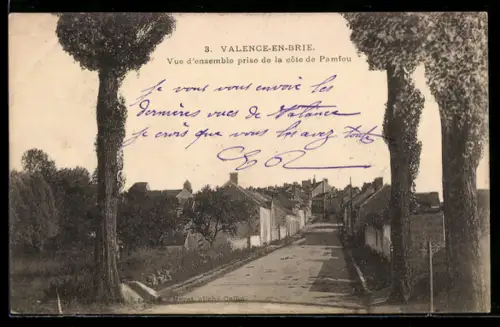 3. VALENCE-EN-BRIE.
Vue d'ensemble prise de la côte de Pamfou
Je vous vous envoie les
dernières vues de Valence
je crois que vous les avez toutes
cliché